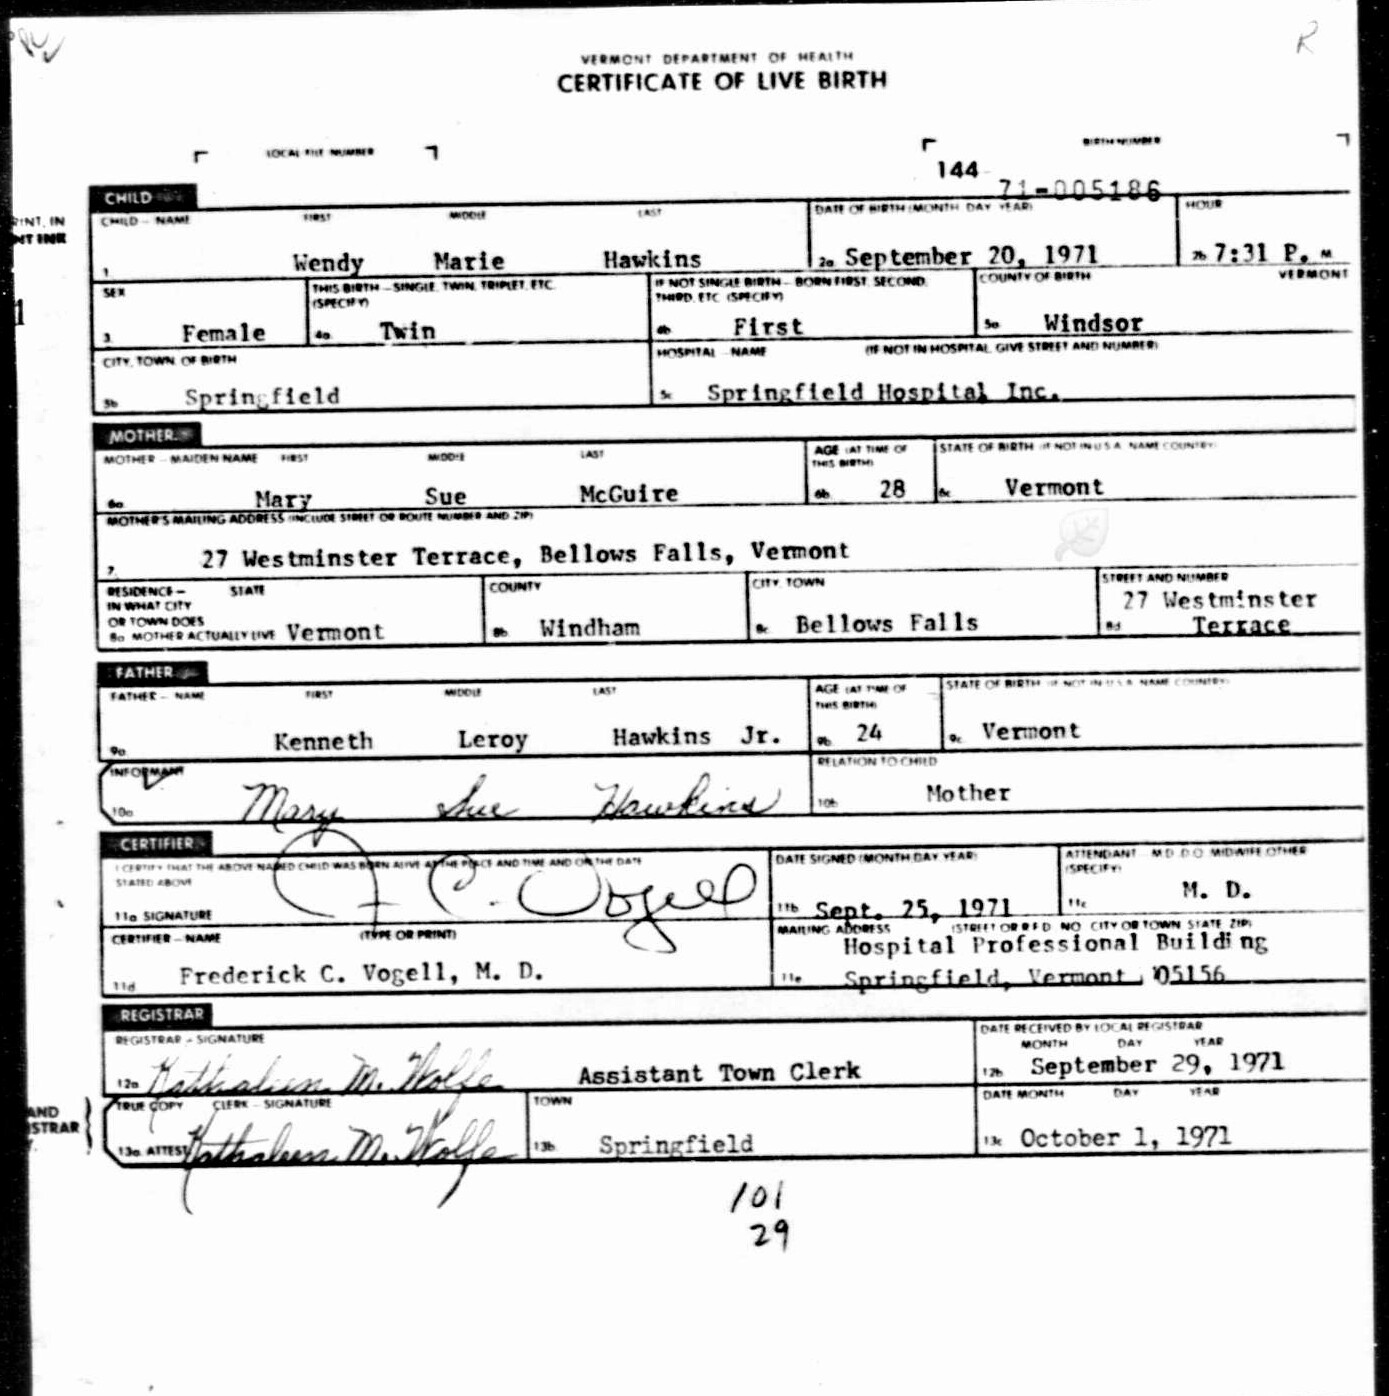 VERMONT DEPARTMENT OF HEALTH
CERTIFICATE OF LIVE BIRTH
R
LOCAL FILE NUMBER
BIRTH NUMBER
144
71-005186
CHILD
RINT, IN
NT INK
CHILD – NAME FIRST MIDDLE LAST
DATE OF BIRTH (MONTH, DAY, YEAR)
HOUR
1. Wendy Marie Hawkins
2a September 20, 1971
2b 7:31 P. M
SEX
THIS BIRTH – SINGLE, TWIN, TRIPLET, ETC.
(SPECIFY)
IF NOT SINGLE BIRTH – BORN FIRST, SECOND,
THIRD, ETC. (SPECIFY)
COUNTY OF BIRTH
VERMONT
1
3. Female
4a Twin
4b First
5a Windsor
CITY, TOWN, OF BIRTH
HOSPITAL – NAME (IF NOT IN HOSPITAL, GIVE STREET AND NUMBER)
5b Springfield
5c Springfield Hospital Inc.
MOTHER
MOTHER – MAIDEN NAME FIRST MIDDLE LAST
AGE (AT TIME OF
THIS BIRTH)
STATE OF BIRTH (IF NOT IN U.S.A. NAME COUNTRY)
6a Mary Sue McGuire
6b 28
6c Vermont
MOTHER'S MAILING ADDRESS (INCLUDE STREET OR ROUTE NUMBER AND ZIP)
7. 27 Westminster Terrace, Bellows Falls, Vermont
RESIDENCE – STATE
IN WHAT CITY
OR TOWN DOES
8a MOTHER ACTUALLY LIVE Vermont
COUNTY
8b Windham
CITY, TOWN
8c Bellows Falls
STREET AND NUMBER
27 Westminster
8d Terrace
FATHER
FATHER – NAME FIRST MIDDLE LAST
AGE (AT TIME OF
THIS BIRTH)
STATE OF BIRTH (IF NOT IN U.S.A. NAME COUNTRY)
9a Kenneth Leroy Hawkins Jr.
9b 24
9c Vermont
INFORMANT
RELATION TO CHILD
10a Mary Sue Hawkins
10b Mother
CERTIFIER
I CERTIFY THAT THE ABOVE NAMED CHILD WAS BORN ALIVE AT THE PLACE AND TIME AND ON THE DATE
STATED ABOVE
DATE SIGNED (MONTH, DAY, YEAR)
ATTENDANT – M.D. D.O. MIDWIFE OTHER
(SPECIFY)
11a SIGNATURE F C. Vogell
11b Sept. 25, 1971
11c M. D.
CERTIFIER – NAME (TYPE OR PRINT)
MAILING ADDRESS (STREET OR R.F.D. NO. CITY OR TOWN, STATE, ZIP)
11d Frederick C. Vogell, M. D.
Hospital Professional Building
11e Springfield, Vermont 05156
REGISTRAR
REGISTRAR – SIGNATURE
DATE RECEIVED BY LOCAL REGISTRAR
MONTH DAY YEAR
12a Kathaleen M. Wolfe Assistant Town Clerk
12b September 29, 1971
AND
ISTRAR
TRUE COPY CLERK – SIGNATURE
TOWN
DATE MONTH DAY YEAR
13a ATTEST Kathaleen M. Wolfe
13b Springfield
13c October 1, 1971
101
29